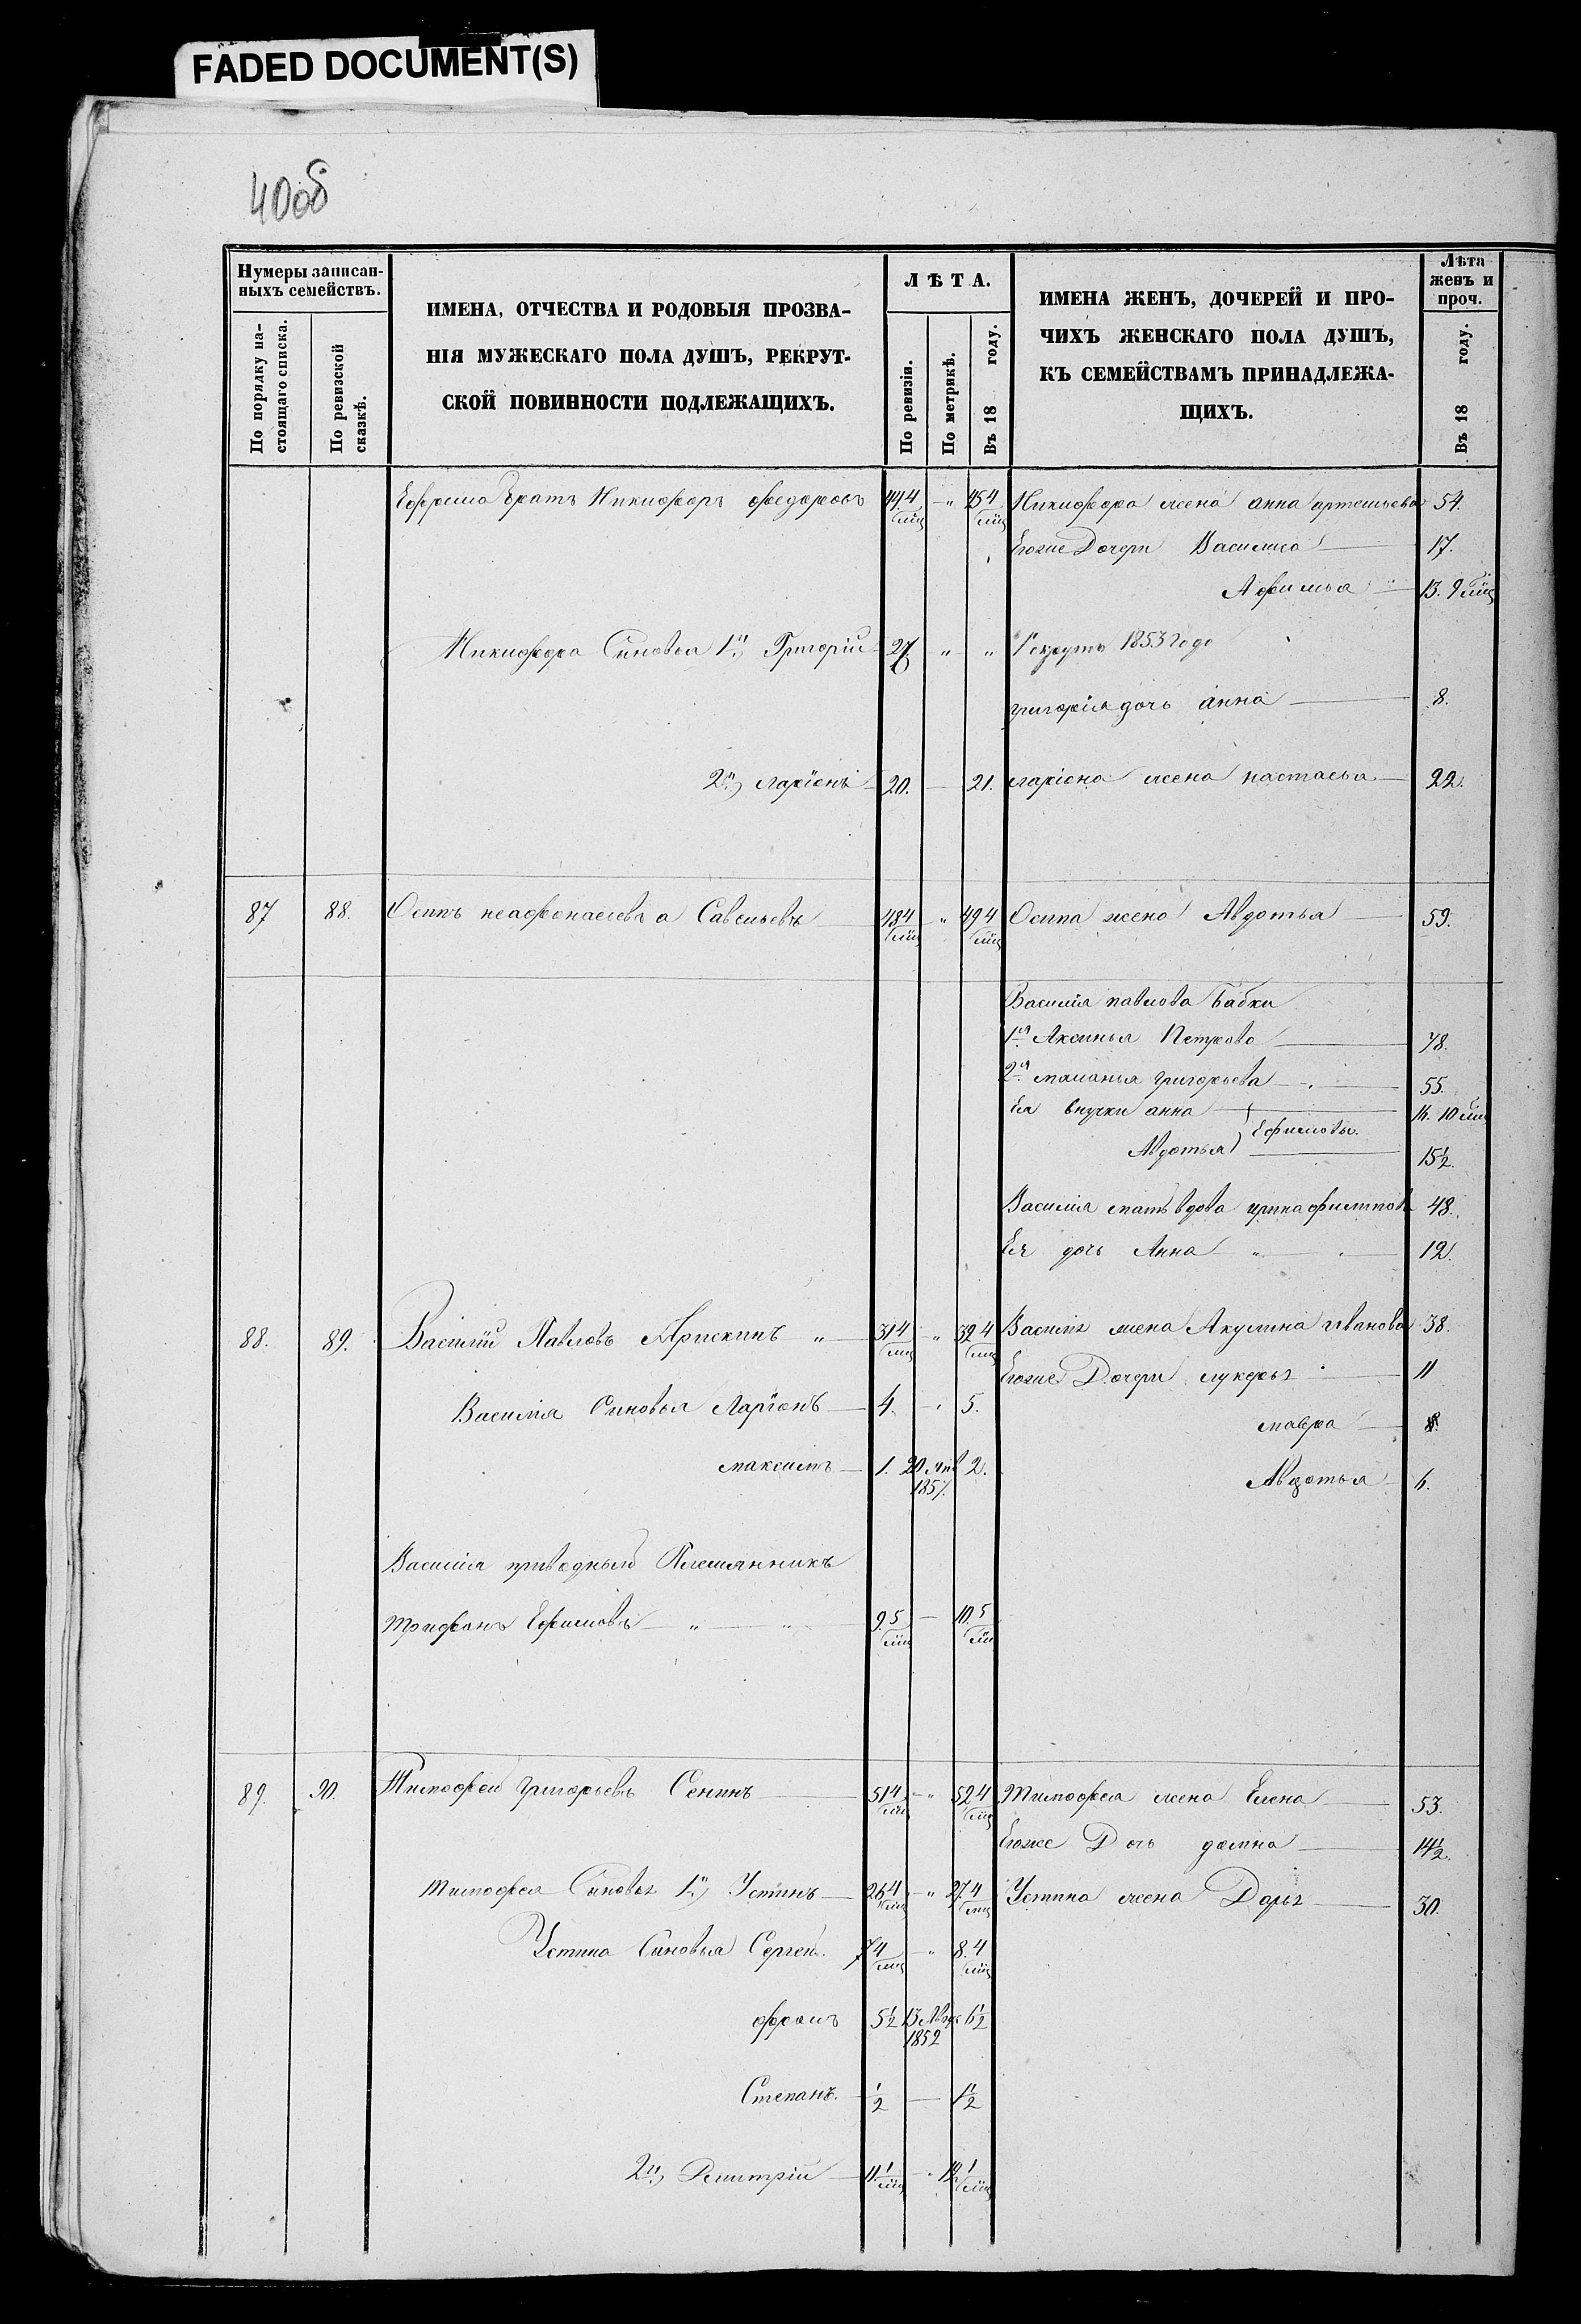 FADED DOCUMENT(S)
40об
Нумеры записан-
ныхъ семействъ.
По порядку на-
стоящаго списка.
По ревизской
сказкѣ.
ИМЕНА, ОТЧЕСТВА И РОДОВЫЯ ПРОЗВА-
НІЯ МУЖЕСКАГО ПОЛА ДУШЪ, РЕКРУТ-
СКОЙ ПОВИННОСТИ ПОДЛЕЖАЩИХЪ.
ЛѢТА.
По ревизіи.
По метрикѣ.
Въ 18 году.
ИМЕНА ЖЕНЪ, ДОЧЕРЕЙ И ПРО-
ЧИХЪ ЖЕНСКАГО ПОЛА ДУШЪ,
КЪ СЕМЕЙСТВАМЪ ПРИНАДЛЕЖА-
ЩИХЪ.
Лѣта
женъ и
проч.
Въ 18 году.
Ефрима братъ Никифоръ федоровъ 44 4/мц " 45 4/мц Никифора жена анна артемьева 54.
Егоже Дочери Василиса 17.
Афимья 13. 9 мц
Никифора Синовья 1й Григорій 27 " " Рекрутъ 1853 года
григорія дочь анна 8.
2й ларіонъ 20. 21. ларіона жена настасья 22.
87 88. Осипъ неафонасіевъ а Савельевъ 48 4/мц " 49 4/мц Осипа жена Авдотья 59.
Василія павлова Бабки
1я Аксинья Петрова 78.
2я маланья григорьева 55.
Ея внучки анна 10 мц
Авдотья Ефимовы 15 1/2.
Василія мать вдова ирина филипов 48.
Ея дочь Анна 12.
88. 89. Василій Павловъ Арискинъ " 31 4/мц " 32 4/мц Василія жена Акулина иванова 38.
Егоже Дочери лукерья 11
Василія Синовья Ларіонъ 4. 5.
мавра 8.
максимъ 1. 20 янв 1857. 2.
Авдотья 6.
Василія приводный Племянникъ
трифонъ Ефимовъ 9. 5/мц 10. 5/мц
89. 90. Тимофей григорьевъ Сенинъ 51 4/мц " 52 4/мц Тимофея жена Елена 53.
Егоже Дочь домна 14 1/2.
тимофея Синовья 1й Устинъ 26 4/мц " 27. 4/мц Устина жена Дарья 30.
Устина Синовья Сергей. 7 4/мц " 8. 4/мц
фролъ 5 1/2 13 1852 6 1/2
Степанъ. 1/2 1 1/2
2й Дмитрій 11 1/мц 12 1/мц